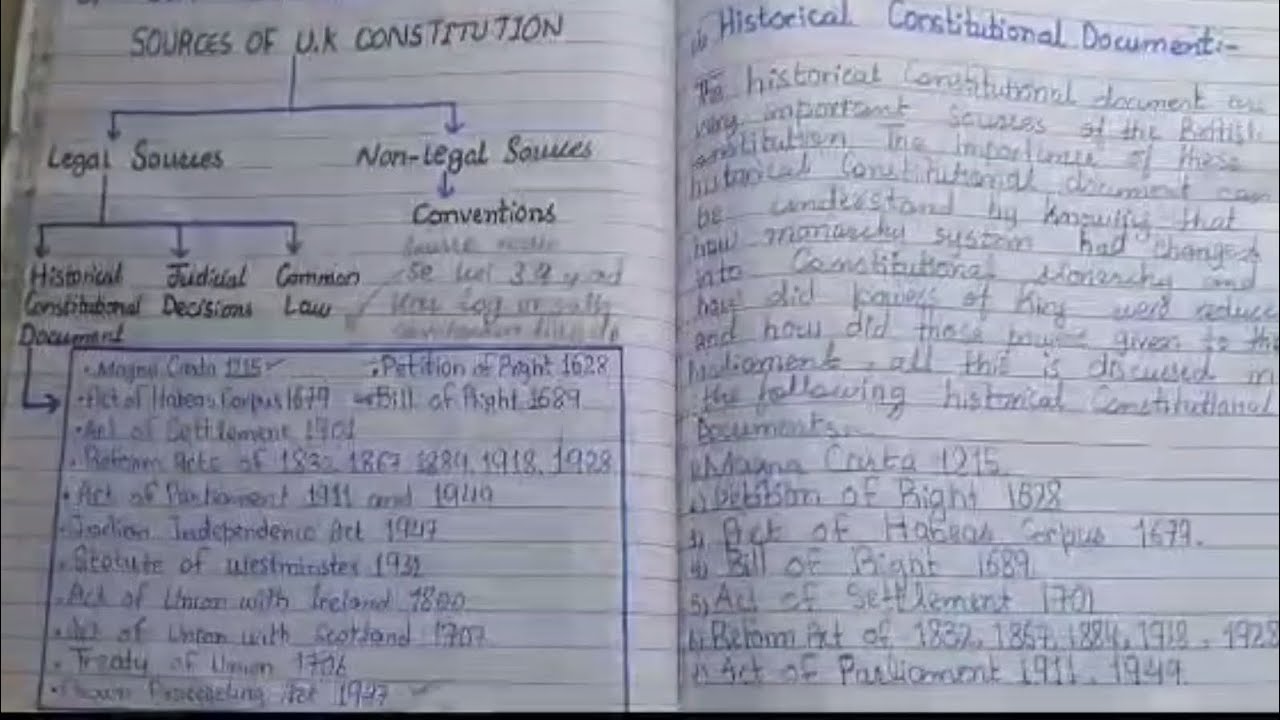 SOURCES OF U.K CONSTITUTION
Legal Sources
Non-Legal Sources
Conventions
Historical Constitutional Document
Judicial Decisions
Common Law
• Magna Carta 1215
• Petition of Right 1628
• Act of Habeas Corpus 1679
Bill of Right 1689
• Act of Settlement 1701
• Reform Acts of 1832, 1867, 1884, 1918, 1928
• Act of Parliament 1911 and 1949
• Indian Independence Act 1947
• Statute of Westminster 1932
• Act of Union with Ireland 1800
• Act of Union with Scotland 1707
• Treaty of Union 1706
• Crown Proceeding Act 1947
Historical Constitutional Document:-
The historical Constitutional document are
very important Sources of the British
constitution The importance of these
historical Constitutional document can
be understand by knowing that
how monarchy system had changed
into Constitutional Monarchy and
how did powers of King were reduce
and how did those given to the
Parliament. all this is discused in
the following historical Constitutional
Documents.
1) Magna Carta 1215.
2) Petition of Right 1628
3) Act of Habeas Corpus 1679.
4) Bill of Right 1689.
5) Act of Settlement 1701
6) Reform Act of 1832, 1867, 1884, 1918, 1928
7) Act of Parliament 1911, 1949.